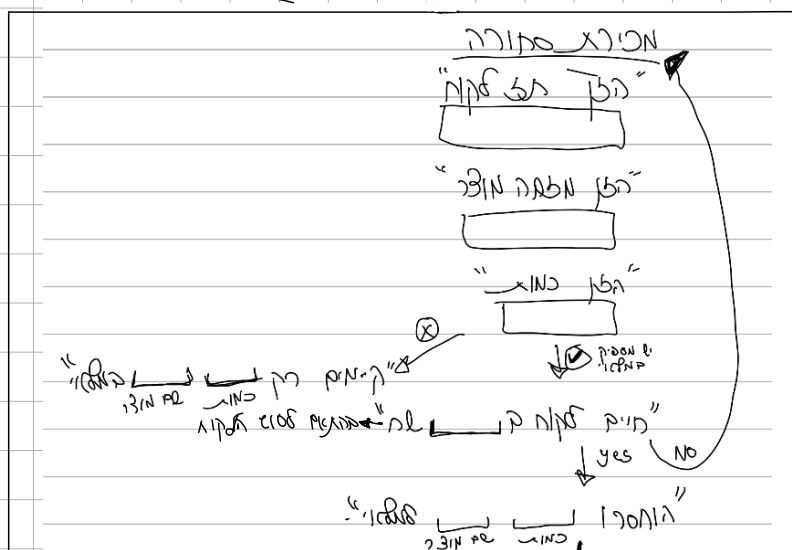 מכירת סחורה
"הזן תז לקוח"
"הזן מזהה מוצר"
"הזן כמות"
יש מספיק
במלאי
"קיימים רק ____ ____ במלאי"
כמות שם מוצר
"חייב לקוח ב ____ שח" בהתאם לסוג הלקוח
yes
NO
"הוחסרו ____ ____ למלאי"
כמות שם מוצר